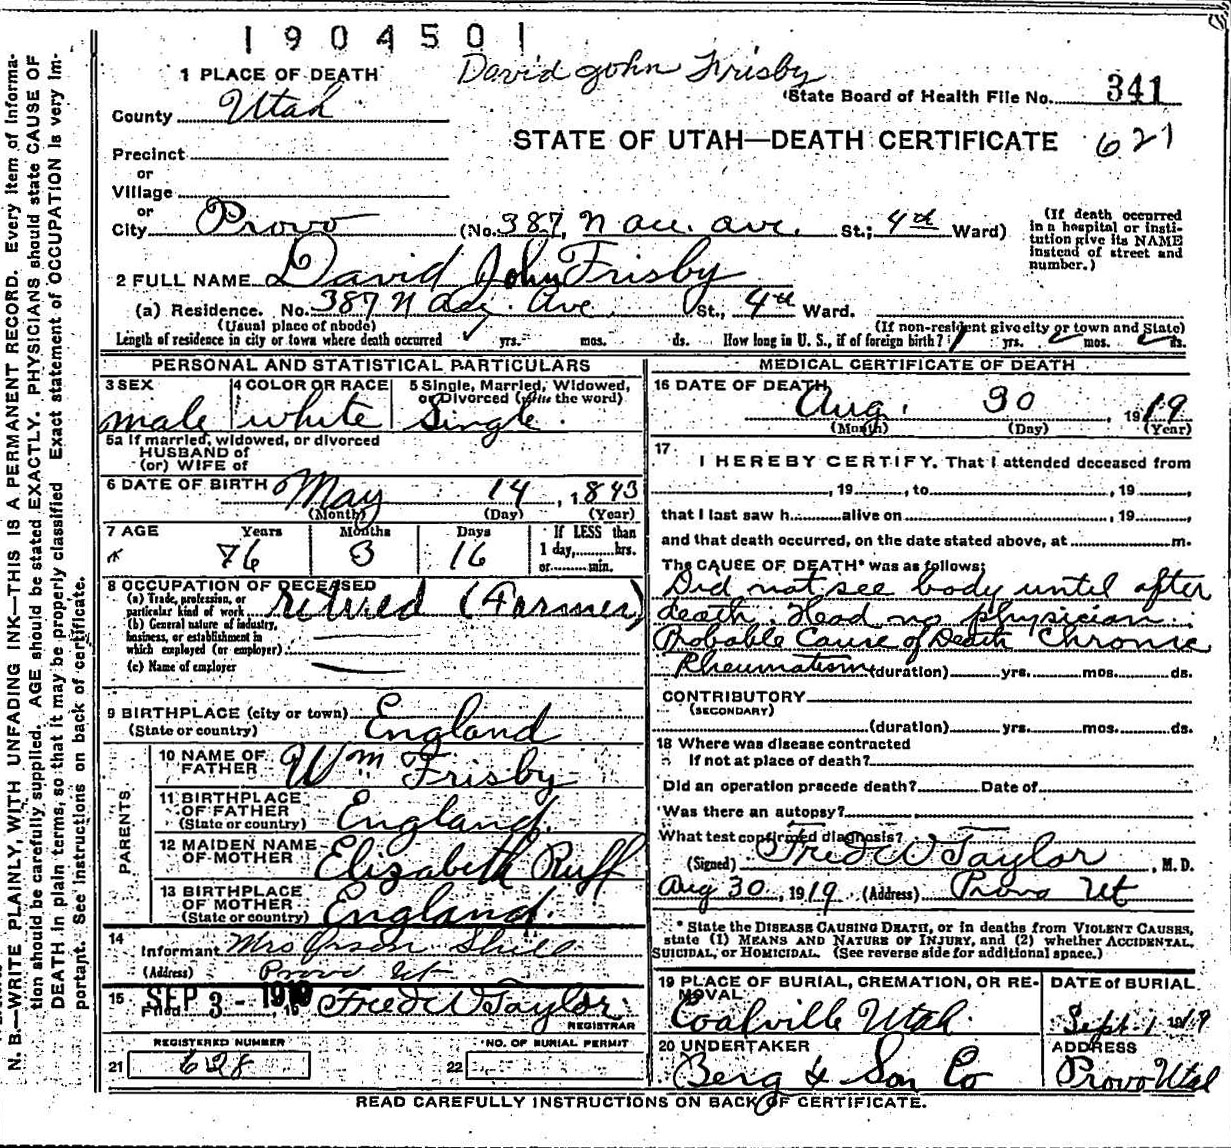 1904501
David John Frisby
1 PLACE OF DEATH
State Board of Health File No. 341
County Utah
STATE OF UTAH—DEATH CERTIFICATE 621
Precinct
or
Village
or
City Provo (No. 387, N Aca. ave. St.; 4th Ward)
(If death occurred in a hospital or institution give its NAME instead of street and number.)
2 FULL NAME David John Frisby
(a) Residence. No. 387 N Ave St., 4th Ward.
(Usual place of abode) (If non-resident give city or town and State)
Length of residence in city or town where death occurred yrs. mos. ds. How long in U. S., if of foreign birth? yrs. mos. ds.
PERSONAL AND STATISTICAL PARTICULARS
3 SEX 4 COLOR OR RACE 5 Single, Married, Widowed, or Divorced (write the word)
male white Single.
5a If married, widowed, or divorced
HUSBAND of
(or) WIFE of
6 DATE OF BIRTH May 14, 1843
(Month) (Day) (Year)
7 AGE Years Months Days If LESS than
76 3 16 1 day,........hrs.
or........min.
8 OCCUPATION OF DECEASED
(a) Trade, profession, or particular kind of work retired (Farmer)
(b) General nature of industry, business, or establishment in which employed (or employer)
(c) Name of employer
9 BIRTHPLACE (city or town)
(State or country) England
PARENTS
10 NAME OF FATHER Wm Frisby
11 BIRTHPLACE OF FATHER
(State or country) England.
12 MAIDEN NAME OF MOTHER Elizabeth Ruff
13 BIRTHPLACE OF MOTHER
(State or country) England.
14 Informant Mrs Orson
(Address) Provo Ut.
15 Filed SEP 3 - 1919, 19 Fred W Taylor.
REGISTRAR
REGISTERED NUMBER
21 628
NO. OF BURIAL PERMIT
22
MEDICAL CERTIFICATE OF DEATH
16 DATE OF DEATH
Aug. 30 1919
(Month) (Day) (Year)
17
I HEREBY CERTIFY. That I attended deceased from
, 19......, to , 19......,
that I last saw h......alive on , 19......,
and that death occurred, on the date stated above, at m.
The CAUSE OF DEATH* was as follows:
Did not see body until after
death. Head no physician.
Probable Cause of Death Chronic
Rheumatism (duration) yrs. mos. ds.
CONTRIBUTORY
(SECONDARY)
(duration) yrs. mos. ds.
18 Where was disease contracted
If not at place of death?
Did an operation precede death? Date of
Was there an autopsy?
What test confirmed diagnosis?
(Signed) Fred W Taylor, M. D.
Aug 30, 1919. (Address) Provo Ut
* State the DISEASE CAUSING DEATH, or in deaths from VIOLENT CAUSES,
state (1) MEANS AND NATURE OF INJURY, and (2) whether ACCIDENTAL,
SUICIDAL, or HOMICIDAL. (See reverse side for additional space.)
19 PLACE OF BURIAL, CREMATION, OR REMOVAL
Coalville Utah.
DATE of BURIAL
Sept. 1 1919
20 UNDERTAKER
Berg & Son Co
ADDRESS
Provo Utah
READ CAREFULLY INSTRUCTIONS ON BACK OF CERTIFICATE.
N. B.—WRITE PLAINLY, WITH UNFADING INK—THIS IS A PERMANENT RECORD. Every item of informa-
tion should be carefully supplied. AGE should be stated EXACTLY. PHYSICIANS should state CAUSE OF
DEATH in plain terms, so that it may be properly classified. Exact statement of OCCUPATION is very im-
portant. See instructions on back of certificate.